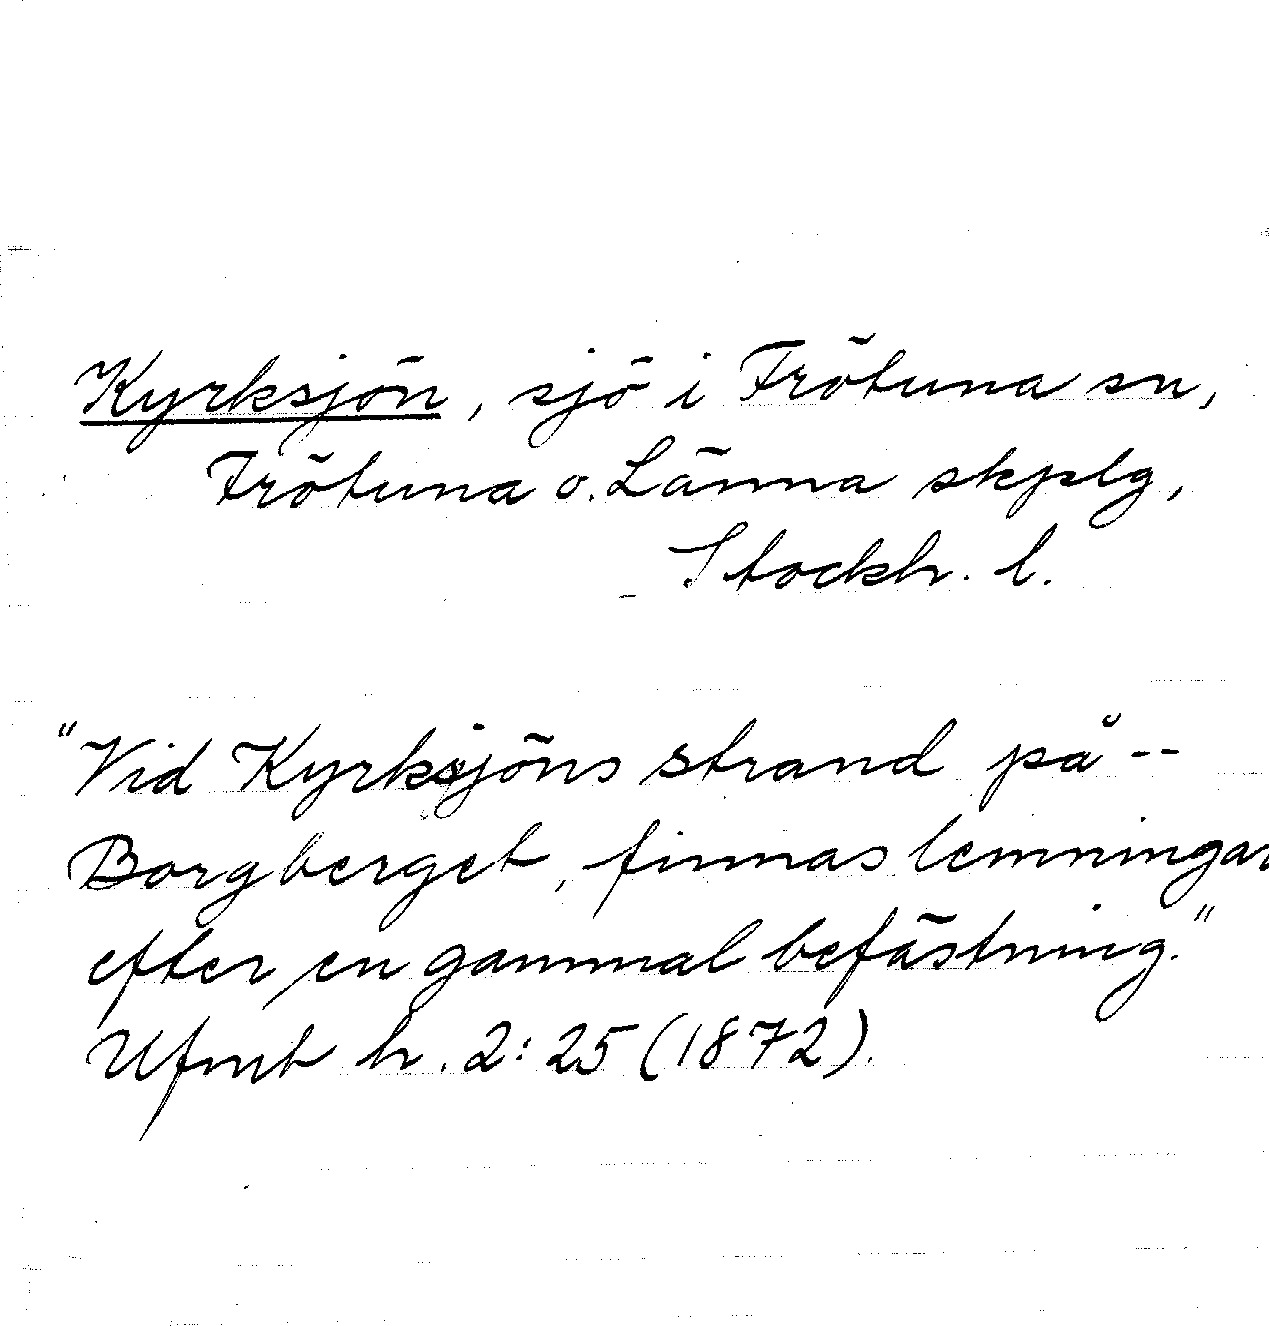 Kyrksjön, sjö i Frötuna sn,
Frötuna o. Länna skplg,
Stockh. l.
"Vid Kyrksjöns strand på --
Borgberget, finnas lemningar
efter en gammal befästning."
Ufmt h. 2:25 (1872).